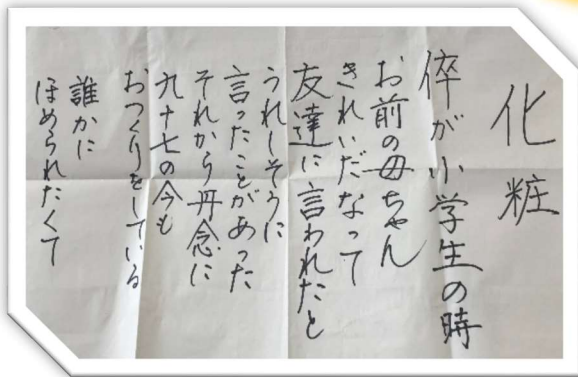 化粧
倅が小学生の時
お前の母ちゃん
きれいだなって
友達に言われたと
うれしそうに
言ったことがあった
それから丹念に
九十七の今も
おつくりをしている
誰かに
ほめられたくて